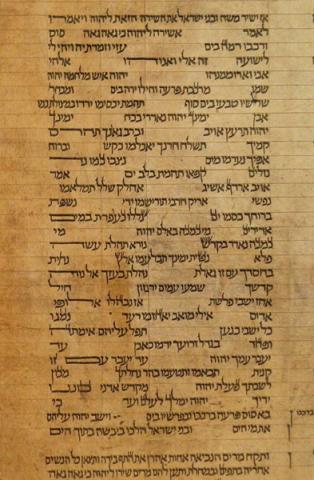 אז ישיר משה ובני ישראל את השירה הזאת ליהוה ויאמרו
לאמר אשירה ליהוה כי גאה גאה סוס
ורכבו רמה בים עזי וזמרת יה ויהי לי
לישועה זה אלי ואנוהו אלהי
אבי וארממנהו יהוה איש מלחמה יהוה
שמו מרכבת פרעה וחילו ירה בים ומבחר
שלשיו טבעו בים סוף תהמת יכסימו ירדו במצולת כמו
אבן ימינך יהוה נאדרי בכח ימינך
יהוה תרעץ אויב וברב גאונך תהרס
קמיך תשלח חרנך יאכלמו כקש וברוח
אפיך נערמו מים נצבו כמו נד
נזלים קפאו תהמת בלב ים אמר
אויב ארדף אשיג אחלק שלל תמלאמו
נפשי אריק חרבי תורישמו ידי נשפת
ברוחך כסמו ים צללו כעופרת במים
אדירים מי כמכה באלם יהוה מי
כמכה נאדר בקדש נורא תהלת עשה
פלא נטית ימינך תבלעמו ארץ נחית
בחסדך עם זו גאלת נהלת בעזך אל נוה
קדשך שמעו עמים ירגזון חיל
אחז ישבי פלשת אז נבהלו אלופי
אדום אילי מואב יאחזמו רעד נמגו
כל ישבי כנען תפל עליהם אימתה
ופחד בגדל זרועך ידמו כאבן עד
יעבר עמך יהוה עד יעבר עם זו
קנית תבאמו ותטעמו בהר נחלתך מכון
לשבתך פעלת יהוה מקדש אדני כוננו
ידיך יהוה ימלך לעלם ועד כי
בא סוס פרעה ברכבו ובפרשיו בים וישב יהוה עלהם
את מי הים ובני ישראל הלכו ביבשה בתוך הים
ותקח מרים הנביאה אחות אהרן את התף בידה ותצאן כל הנשים
אחריה בתפים ובמחלת ותען להם מרים שירו ליהוה כי גאה גאה